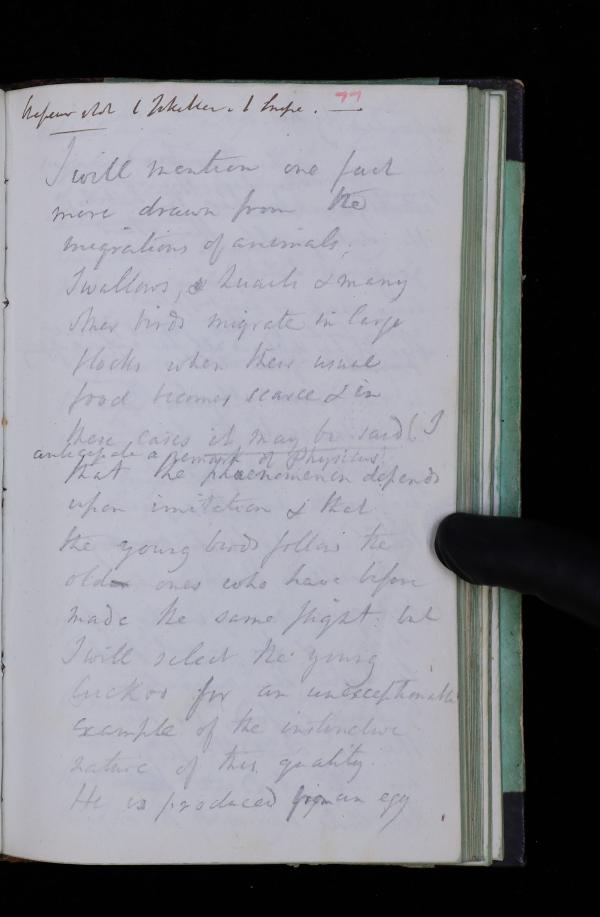 1 Snipe. 77
I will mention one fact
more drawn from the
migrations of animals.
Swallows, & Quails & many
other birds migrate in large
flocks when their usual
food becomes scarce & in
these cases it may be said (I
anticipate a remark of Physicus)
that the phaenomenon depends
upon imitation & that
the young birds follow the
old ones who have before
made the same flight. but
I will select the young
Cuckoo for an unexceptionable
example of the instinctive
nature of this quality.
He is produced from an egg